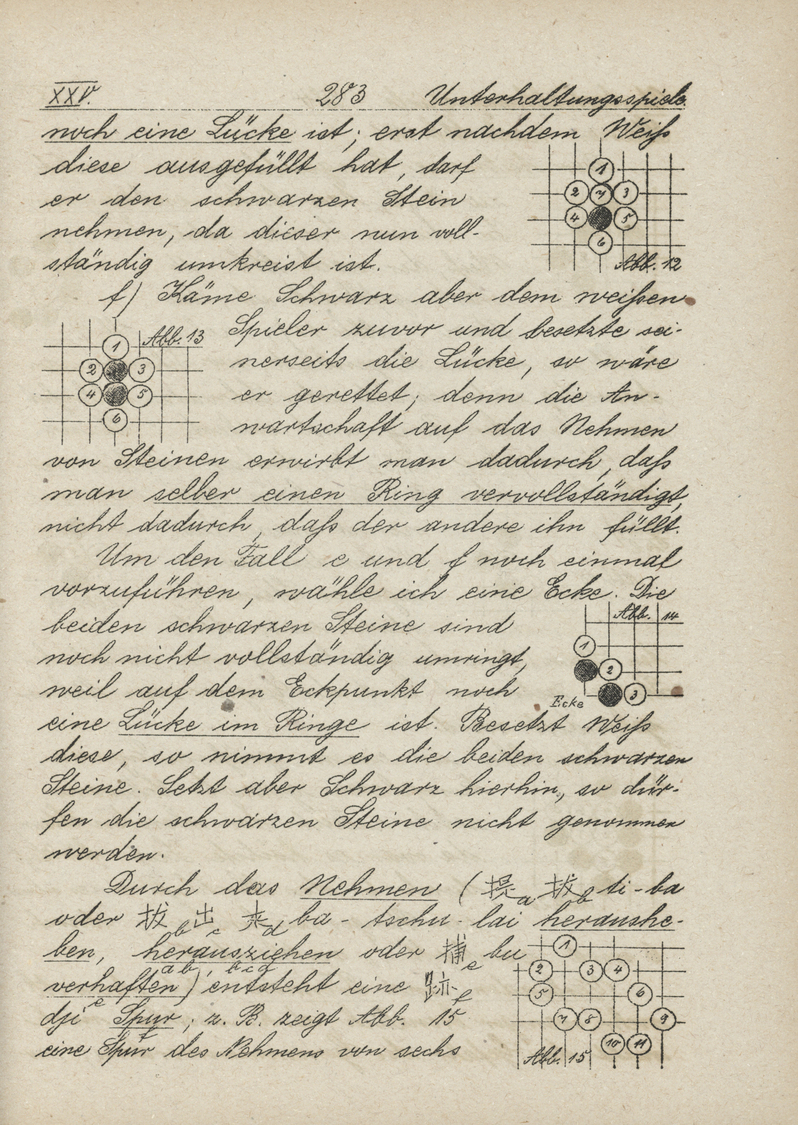 XXV. 283 Unterhaltungsspiele
noch eine Lücke ist; erst nachdem Weiß
diese ausgefüllt hat, darf
er den schwarzen Stein
nehmen, da dieser nun voll-
ständig umkreist ist.
1
2 7 3
4 5
6
Abb. 12
f) Käme Schwarz aber dem weißen
Abb. 13
1
2 3
4 5
6
Spieler zuvor und besetzte sei-
nerseits die Lücke, so wäre
er gerettet; denn die An-
wartschaft auf das Nehmen
von Steinen erwirbt man dadurch, daß
man selber einen Ring vervollständigt,
nicht dadurch, daß der andere ihn füllt.
Um den Fall e und f noch einmal
vorzuführen, wähle ich eine Ecke. Die
beiden schwarzen Steine sind
noch nicht vollständig umringt,
weil auf dem Eckpunkt noch
Abb. 14
1
2
3
Ecke
eine Lücke im Ringe ist. Besetzt Weiß
diese, so nimmt es die beiden schwarzen
Steine. Setzt aber Schwarz hierhin, so dür-
fen die schwarzen Steine nicht genommen
werden.
Durch das Nehmen (提a 拔b ti-ba
oder 拔b 出c 来d ba-tschu-lai heraushe-
ben, herausziehen oder 捕e bu
ab bcd
verhaften) entsteht eine 跡f
e
dji Spur; z. B. zeigt Abb. 15
f
eine Spur des Nehmens von sechs
1
2 3 4
5 6
7 8 9
10 11
Abb. 15